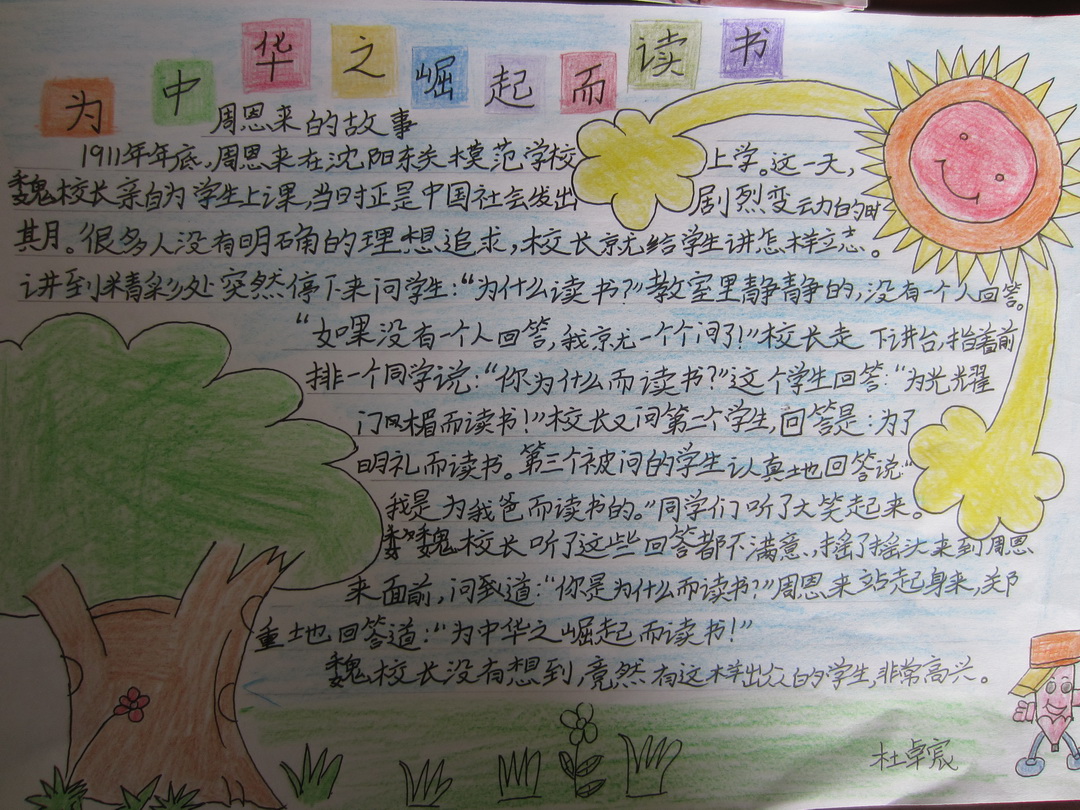 为中华之崛起而读书
周恩来的故事
1911年年底,周恩来在沈阳东关模范学校上学。这一天,
魏校长亲自为学生上课,当时正是中国社会发出剧烈变动的时
其月。很多人没有明确的理想追求,校长就给学生讲怎样立志。
讲到精彩处突然停下来问学生:“为什么读书?”教室里静静的,没有一个人回答。
“如果没有一个人回答,我就一个个问了!”校长走下讲台,指着前
排一个同学说:“你为什么而读书?”这个学生回答:“为光耀
门楣而读书!”校长又问第二个学生,回答是:为了
明礼而读书。第三个被问的学生认真地回答说“
我是为我爸而读书的。”同学们听了大笑起来。
魏校长听了这些回答都不满意,摇了摇头来到周恩
来面前,问到道:“你是为什么而读书?”周恩来站起身来,郑
重地回答道:“为中华之崛起而读书!”
魏校长没有想到,竟然有这样出众的学生,非常高兴。
杜卓宸